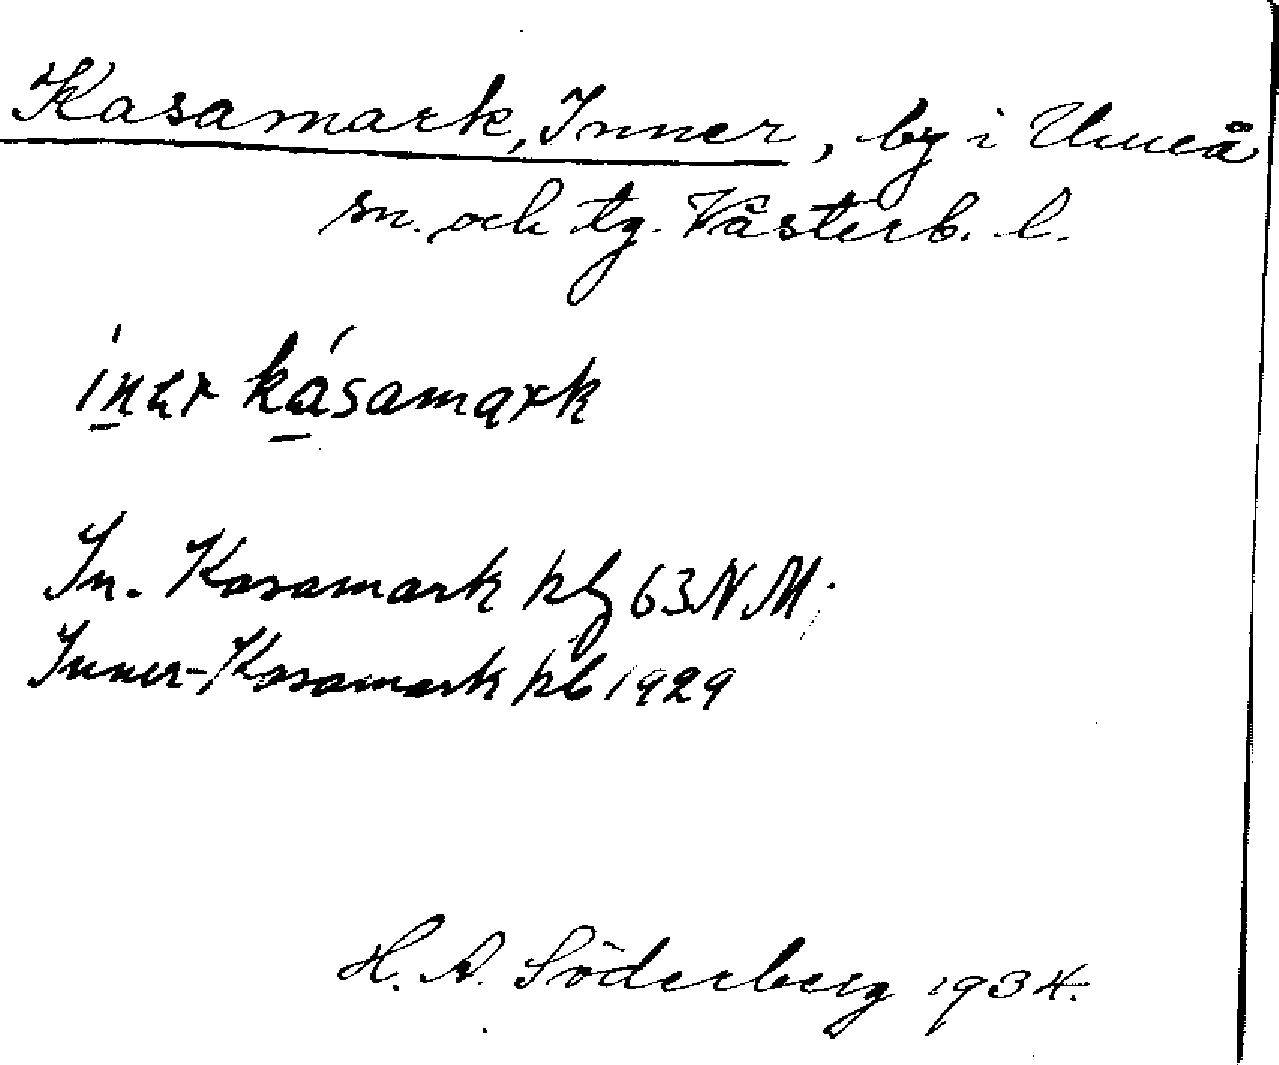 Kasamark, Inner, by i Umeå
sn. och tg. Västerb. l.
ińer kásamark
In. Kasamark kbl 63 NM;
Inner-Kasamark kb 1929
H. A. Söderberg 1934.